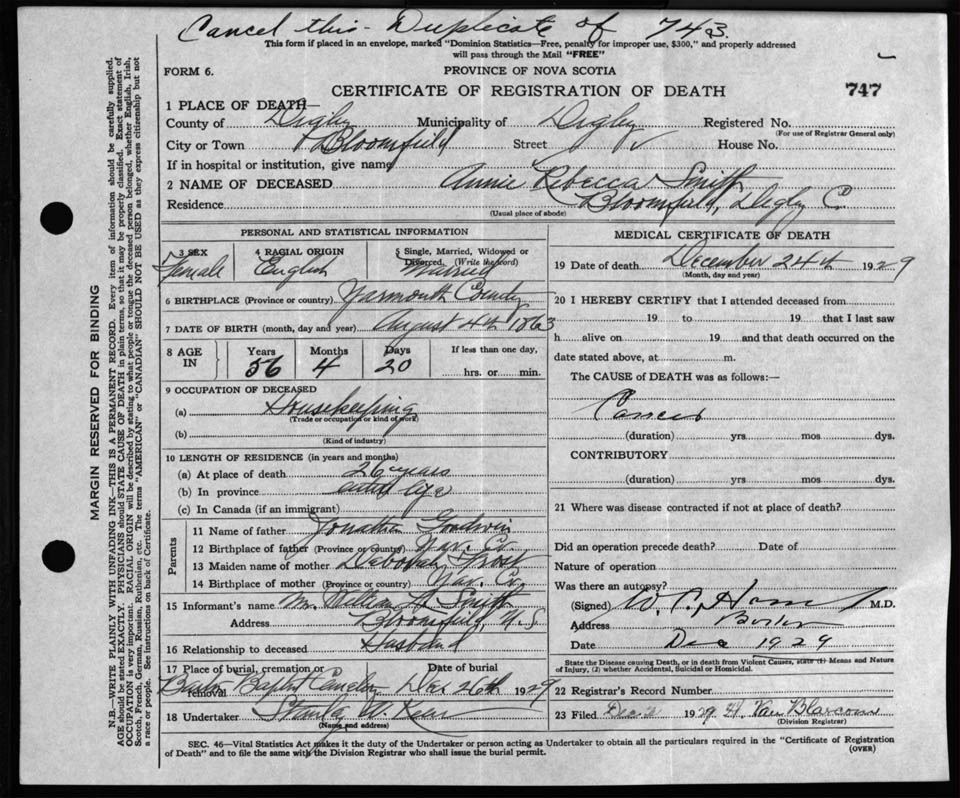 Cancel this - Duplicate of 743.
This form if placed in an envelope, marked "Dominion Statistics—Free, penalty for improper use, $300," and properly addressed
will pass through the Mail "FREE"
FORM 6.
PROVINCE OF NOVA SCOTIA
CERTIFICATE OF REGISTRATION OF DEATH
747
1 PLACE OF DEATH—
County of Digby Municipality of Digby Registered No.
(For use of Registrar General only)
City or Town Bloomfield Street House No.
If in hospital or institution, give name
2 NAME OF DECEASED Annie Rebecca Smith
Residence Bloomfield, Digby Co.
(Usual place of abode)
PERSONAL AND STATISTICAL INFORMATION
3 SEX Female
4 RACIAL ORIGIN English
5 Single, Married, Widowed or
Divorced. (Write the word)
Married
6 BIRTHPLACE (Province or country) Yarmouth County
7 DATE OF BIRTH (month, day and year) August 4th 1863
8 AGE IN Years 56 Months 4 Days 20 If less than one day, hrs. or min.
9 OCCUPATION OF DECEASED
(a) Housekeeping
(Trade or occupation or kind of work)
(b)
(Kind of industry)
10 LENGTH OF RESIDENCE (in years and months)
(a) At place of death 26 years
(b) In province entire life
(c) In Canada (if an immigrant)
Parents
11 Name of father Jonathan Goodwin
12 Birthplace of father (Province or country) Yar. Co.
13 Maiden name of mother Deborah
14 Birthplace of mother (Province or country) Yar. Co.
15 Informant's name Mr. William Smith
Address Bloomfield, N.S.
16 Relationship to deceased Husband
17 Place of burial, cremation or
removal Baptist Cemetery
Date of burial
Dec 26th 1929
18 Undertaker Stanley W.
(Name and address)
MEDICAL CERTIFICATE OF DEATH
19 Date of death December 24th 1929
(Month, day and year)
20 I HEREBY CERTIFY that I attended deceased from
19 to 19 that I last saw
h alive on 19 and that death occurred on the
date stated above, at m.
The CAUSE of DEATH was as follows:—
Cancer
(duration) yrs mos dys.
CONTRIBUTORY
(duration) yrs mos dys.
21 Where was disease contracted if not at place of death?
Did an operation precede death? Date of
Nature of operation
Was there an autopsy?
(Signed) W. M.D.
Address
Date Dec 1929
State the Disease causing Death, or in death from Violent Causes, state (1) Means and Nature
of Injury, (2) whether Accidental, Suicidal or Homicidal.
22 Registrar's Record Number
23 Filed Dec 1929 H. Van Blarcom
(Division Registrar)
SEC. 46—Vital Statistics Act makes it the duty of the Undertaker or person acting as Undertaker to obtain all the particulars required in the "Certificate of Registration
of Death" and to file the same with the Division Registrar who shall issue the burial permit.
(OVER)
MARGIN RESERVED FOR BINDING
N.B.—WRITE PLAINLY WITH UNFADING INK—THIS IS A PERMANENT RECORD. Every item of information should be carefully supplied.
AGE should be stated EXACTLY. PHYSICIANS should STATE CAUSE OF DEATH in plain terms, so that it may be properly classified. Exact statement of
OCCUPATION is very important. RACIAL ORIGIN will be described by stating to what people or tongue the deceased person belonged, whether English, Irish,
Scotch, French, German, Russian, Ruthenian, etc. The terms "AMERICAN" or "CANADIAN" SHOULD NOT BE USED as they express citizenship but not
a race or people. See instructions on back of Certificate.